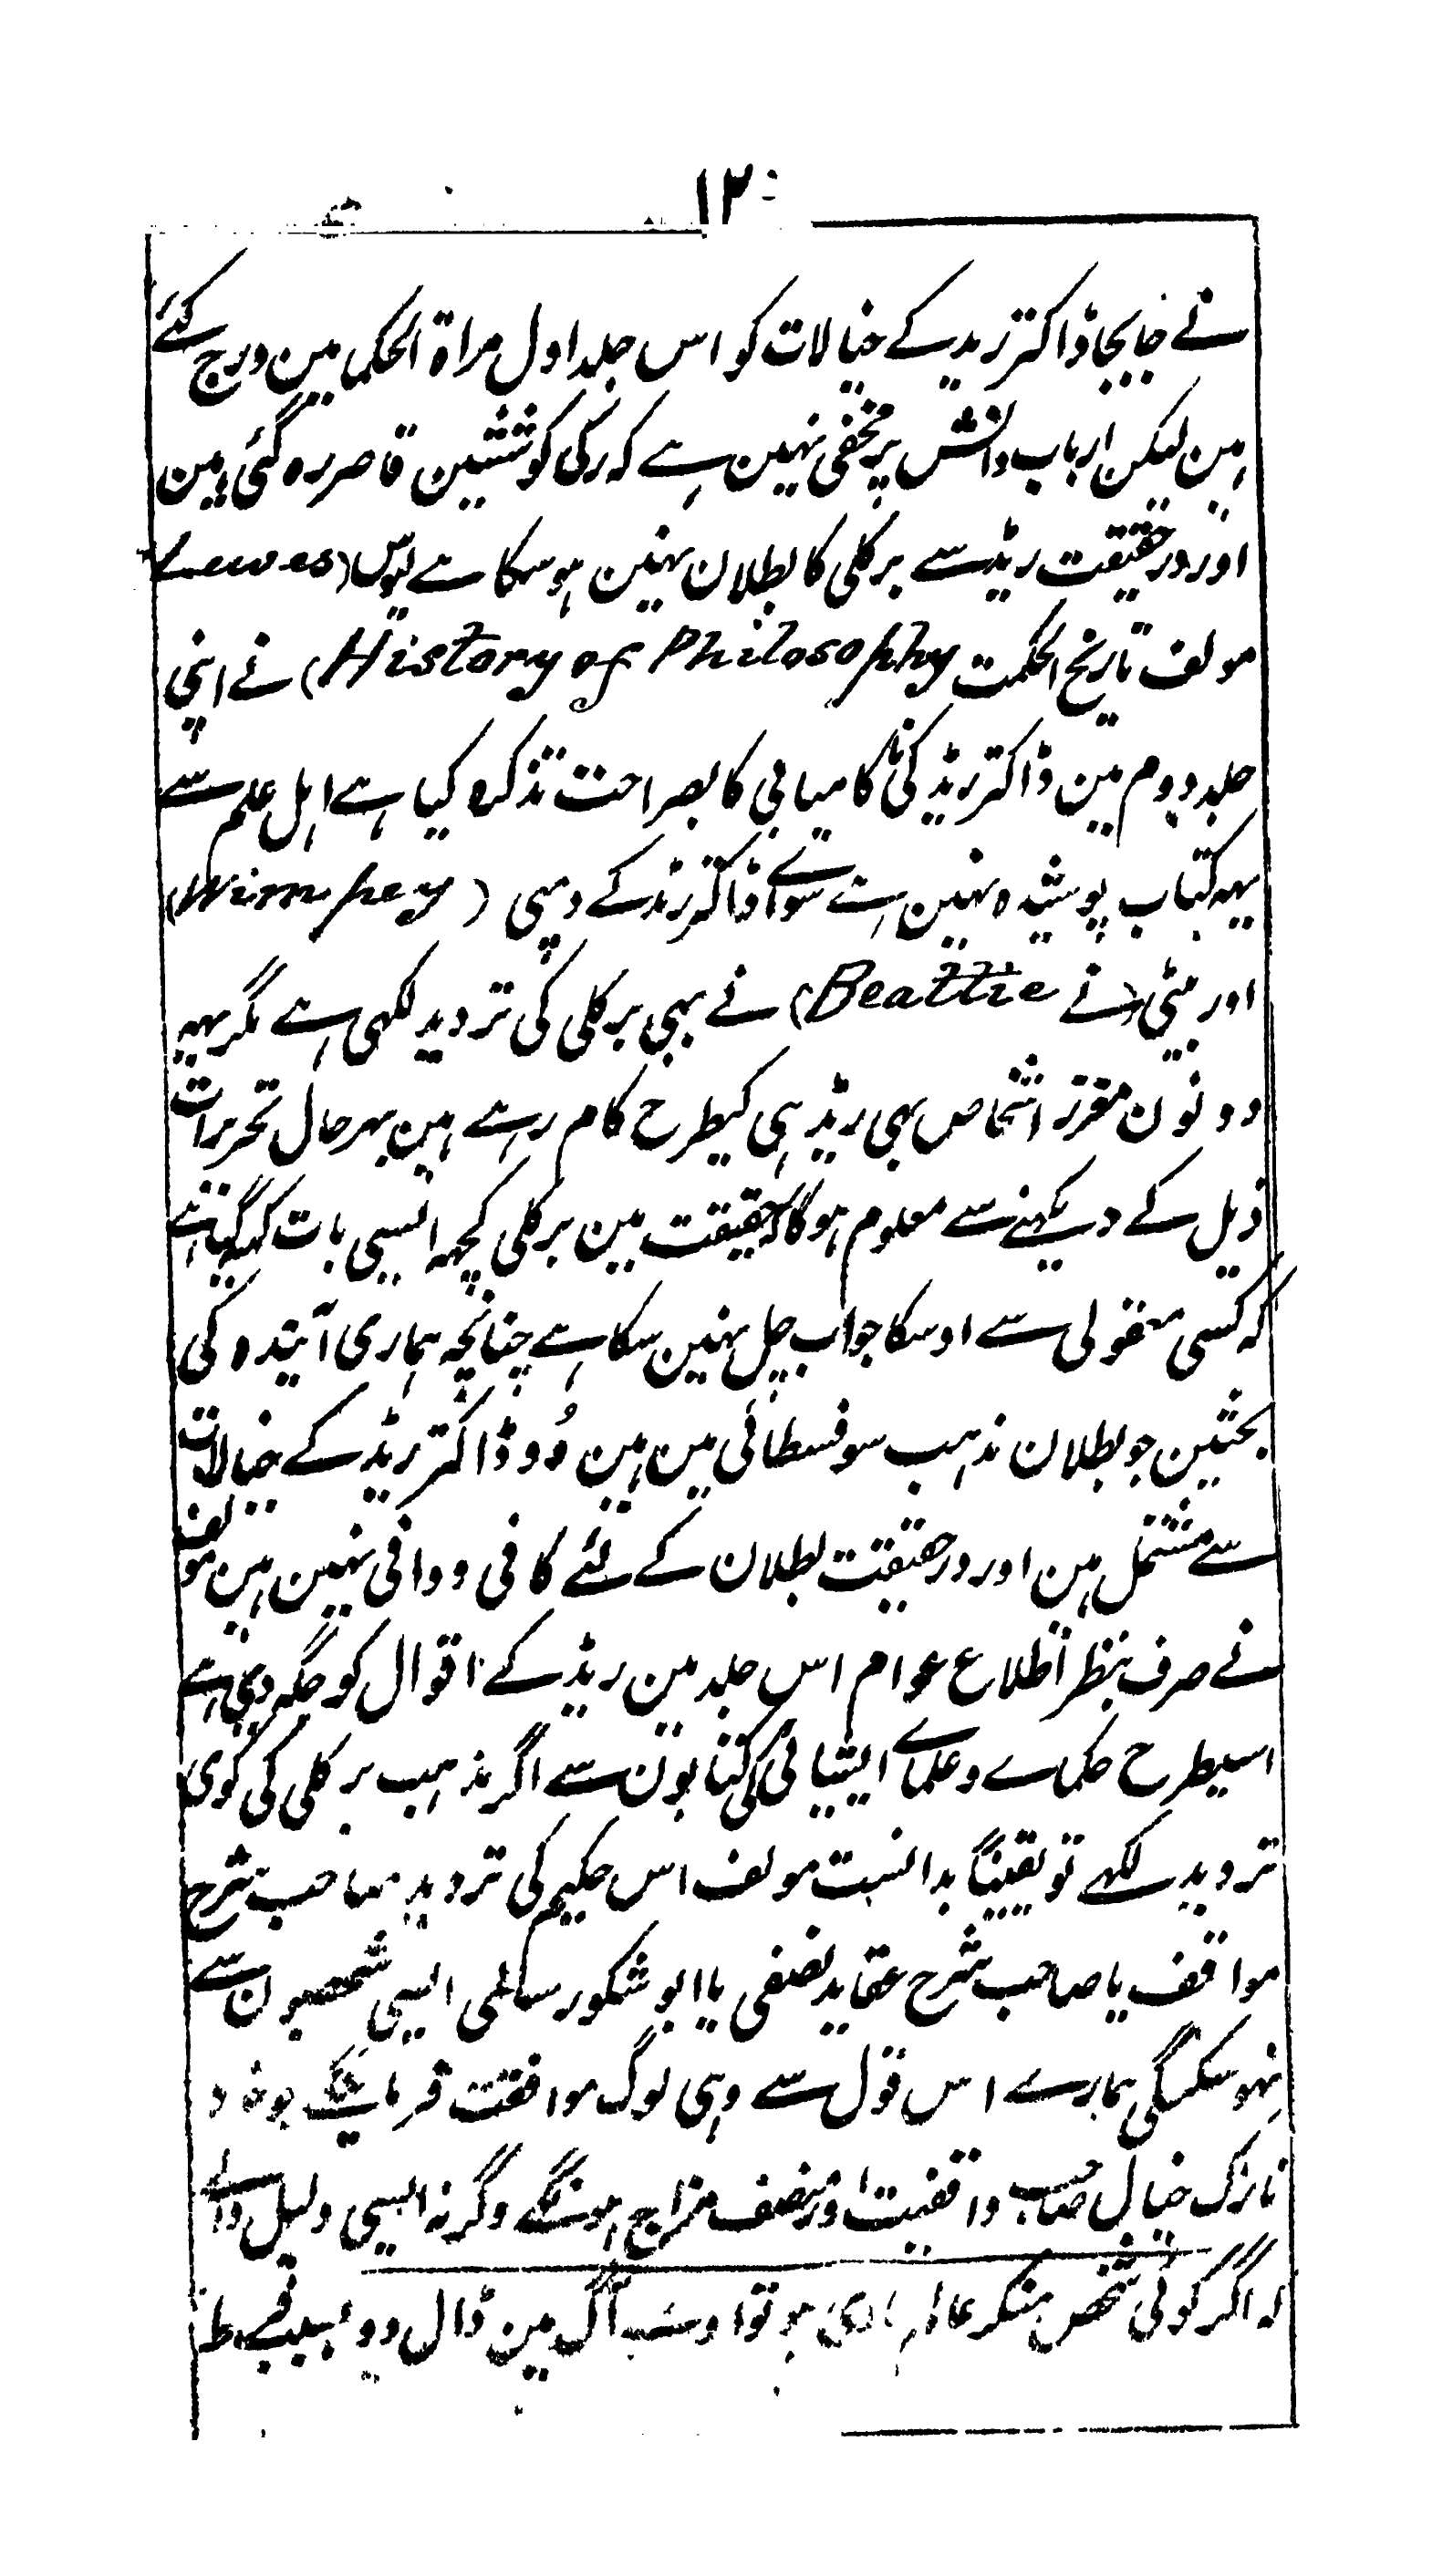 ۱۲
نے جابجا ڈاکتر رید کے خیالات کو اس جلد اول مراۃ الحکما مین درج کئے
ہین لیکن ارباب دانش پر مخفی نہین ہے کہ رکی کوششین قاصر رہ گئی ہین
اور درحقیقت ریڈ سے برکلی کا بطلان نہین ہو سکا ہے لیوس (Lewes
مولف تاریخ الحکمت History of Philosophy) نے اپنی
جلد دوم مین ڈاکتر ریڈ کی ناکامیابی کا بصراحت تذکرہ کیا ہے اہل علم سے
یہہ کتاب پوشیدہ نہین ہے سواے ڈاکتر رند کے ومپی (Wimpey)
اور بیٹی (نے Beattie) نے بہی برکلی کی تردید لکہی ہے مگر یہہ
دونون مقرر اشخاص بہی ریڈ ہی کیطرح کام رہے ہین بہرحال تحریرات
ذیل کے دیکہنے سے معلوم ہوگا کہ حقیقت مین برکلی کچہہ ایسی بات کہہ گیا ہے
کہ کسی معقولی سے اوسکا جواب چل نہین سکا ہے چنانچہ ہماری آیندہ کی
بحثین جو بطلان مذہب سوفسطائی مین ہین وُہ ڈاکتر ریڈ کے خیالات
سے مشتمل ہین اور درحقیقت بطلان کے لئے کافی و وافی نہین ہین مولف
نے صرف بنظر اطلاع عوام اس جلد مین ریڈ کے اقوال کو جگہ دی ہے
اسیطرح حکماے و علماے ایشیائی کی کتابون سے اگر مذہب برکلی کی کوی
تردید لکہے تو یقیناً بدانست مولف اس حکیم کی تردید صاحب شرح
مواقف یا صاحب شرح عقاید نصفی یا ابو شکور سالمی ایسی شخصون سے
نہو سکیگی ہمارے اس قول سے وہی لوگ موافقت فرماینگے جو
نازک خیال صاحب واقفیت اور منصف مزاج ہونگے وگرنہ ایسی دلیل والے
کہ اگر کوئی شخص منکر عالم مادی ہو تو اوسے آگ مین ڈال دو